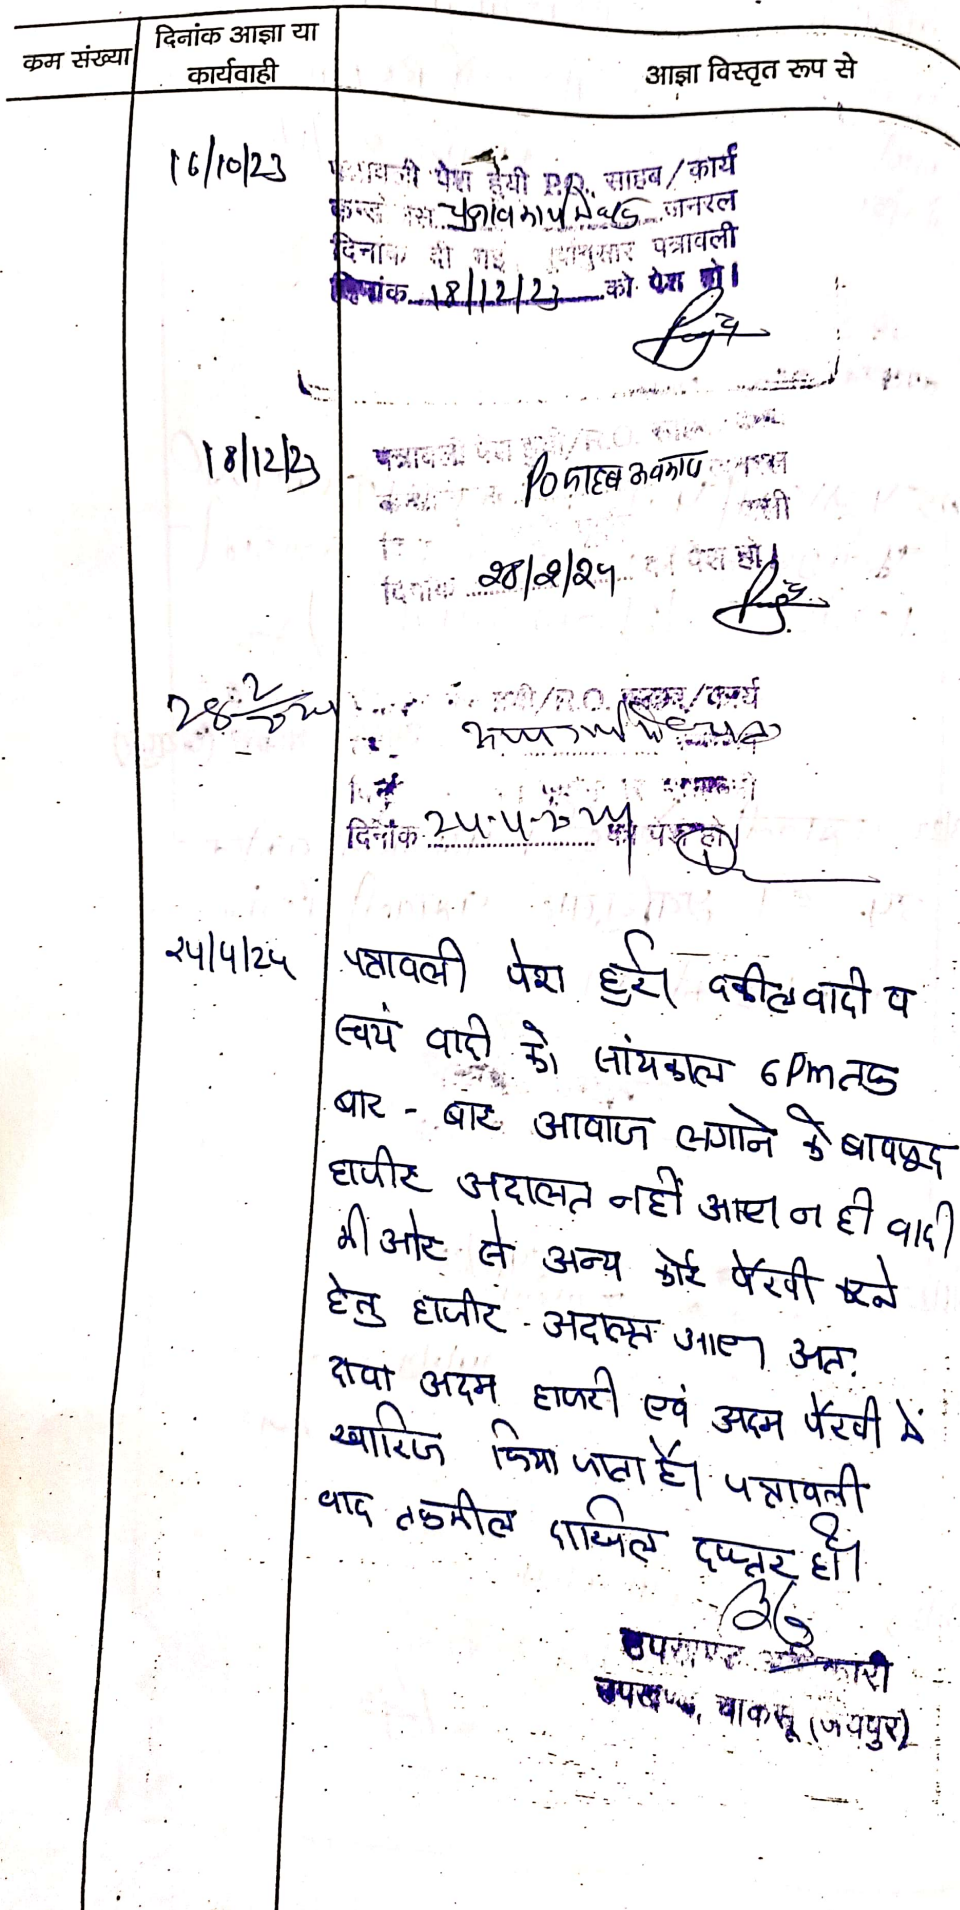 क्रम संख्या
दिनांक आज्ञा या
कार्यवाही
आज्ञा विस्तृत रूप से
16/10/23
पत्रावली पेश हुयी P.O. साहब/कार्य
चुनाव कार्य में व्यस्त जनरल
दिनांक दी गई पत्रावली
दिनांक 18/12/23 को पेश हो।
18/12/23
पत्रावली पेश हुयी/P.O.
PO साहब अवकाश
दिनांक 28/2/24 को पेश हो।
28/2/24
हुयी/P.O. साहब/कार्य
दिनांक 24-4-24 को पेश हो।
24/4/24
पत्रावली पेश हुई। वकील वादी व
स्वयं वादी को सांयकाल 6 Pm तक
बार - बार आवाज लगाने के बावजूद
हाजीर अदालत नहीं आए। न ही वादी
की ओर से अन्य कोई पैरवी करने
हेतु हाजीर - अदालत आए। अत:
दावा अदम हाजरी एवं अदम पैरवी में
खारिज किया जाता है। पत्रावली
बाद तकमील दाखिल दफ्तर हो।
उपखण्ड अधिकारी
उपखण्ड, चाकसू (जयपुर)